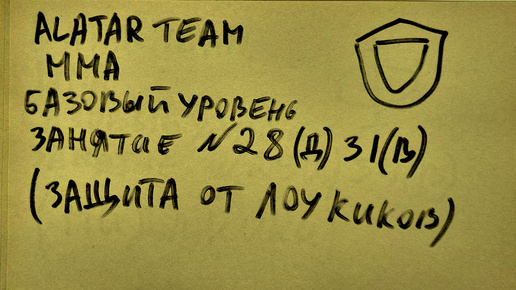 ALATAR TEAM
MMA
БАЗОВЫЙ УРОВЕНЬ
ЗАНЯТИЕ №28(Д) 31(В)
(ЗАЩИТА ОТ ЛОУ КИКОВ)